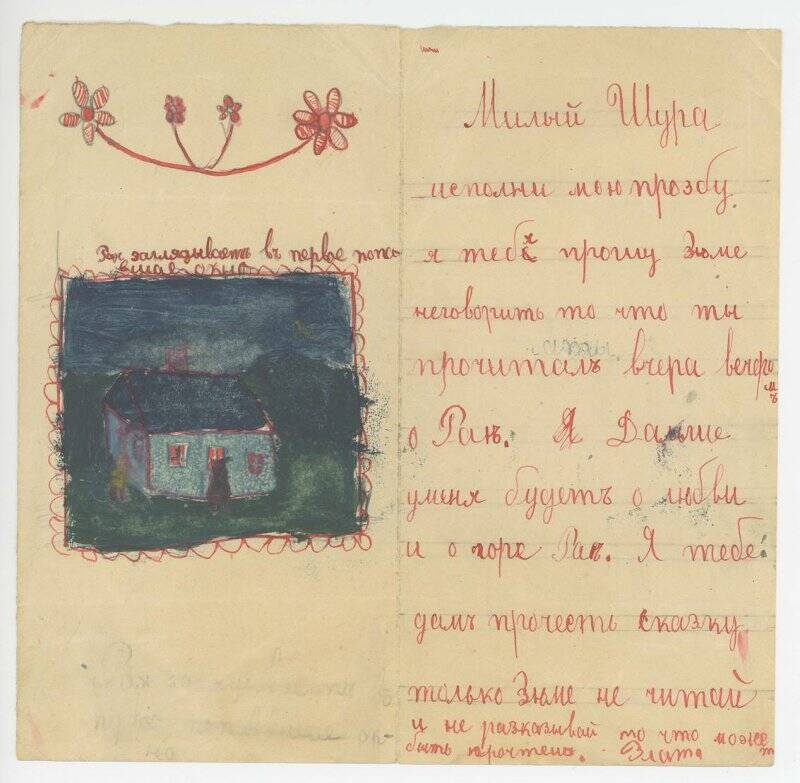 Рах заглядываетъ въ первое попа
вшая окно
Милый Шура
исполни мою прозбу.
я тебя прошу Зюме
неговорить то что ты
прочиталъ вчера вечеро
мъ
о Рак. Я Дальше
уменя будетъ о любви
и о горе Рак. Я тебе
дамъ прочесть сказку
только Зюме не читай
и не разказывай то что може
т
быть прочтено. Злата